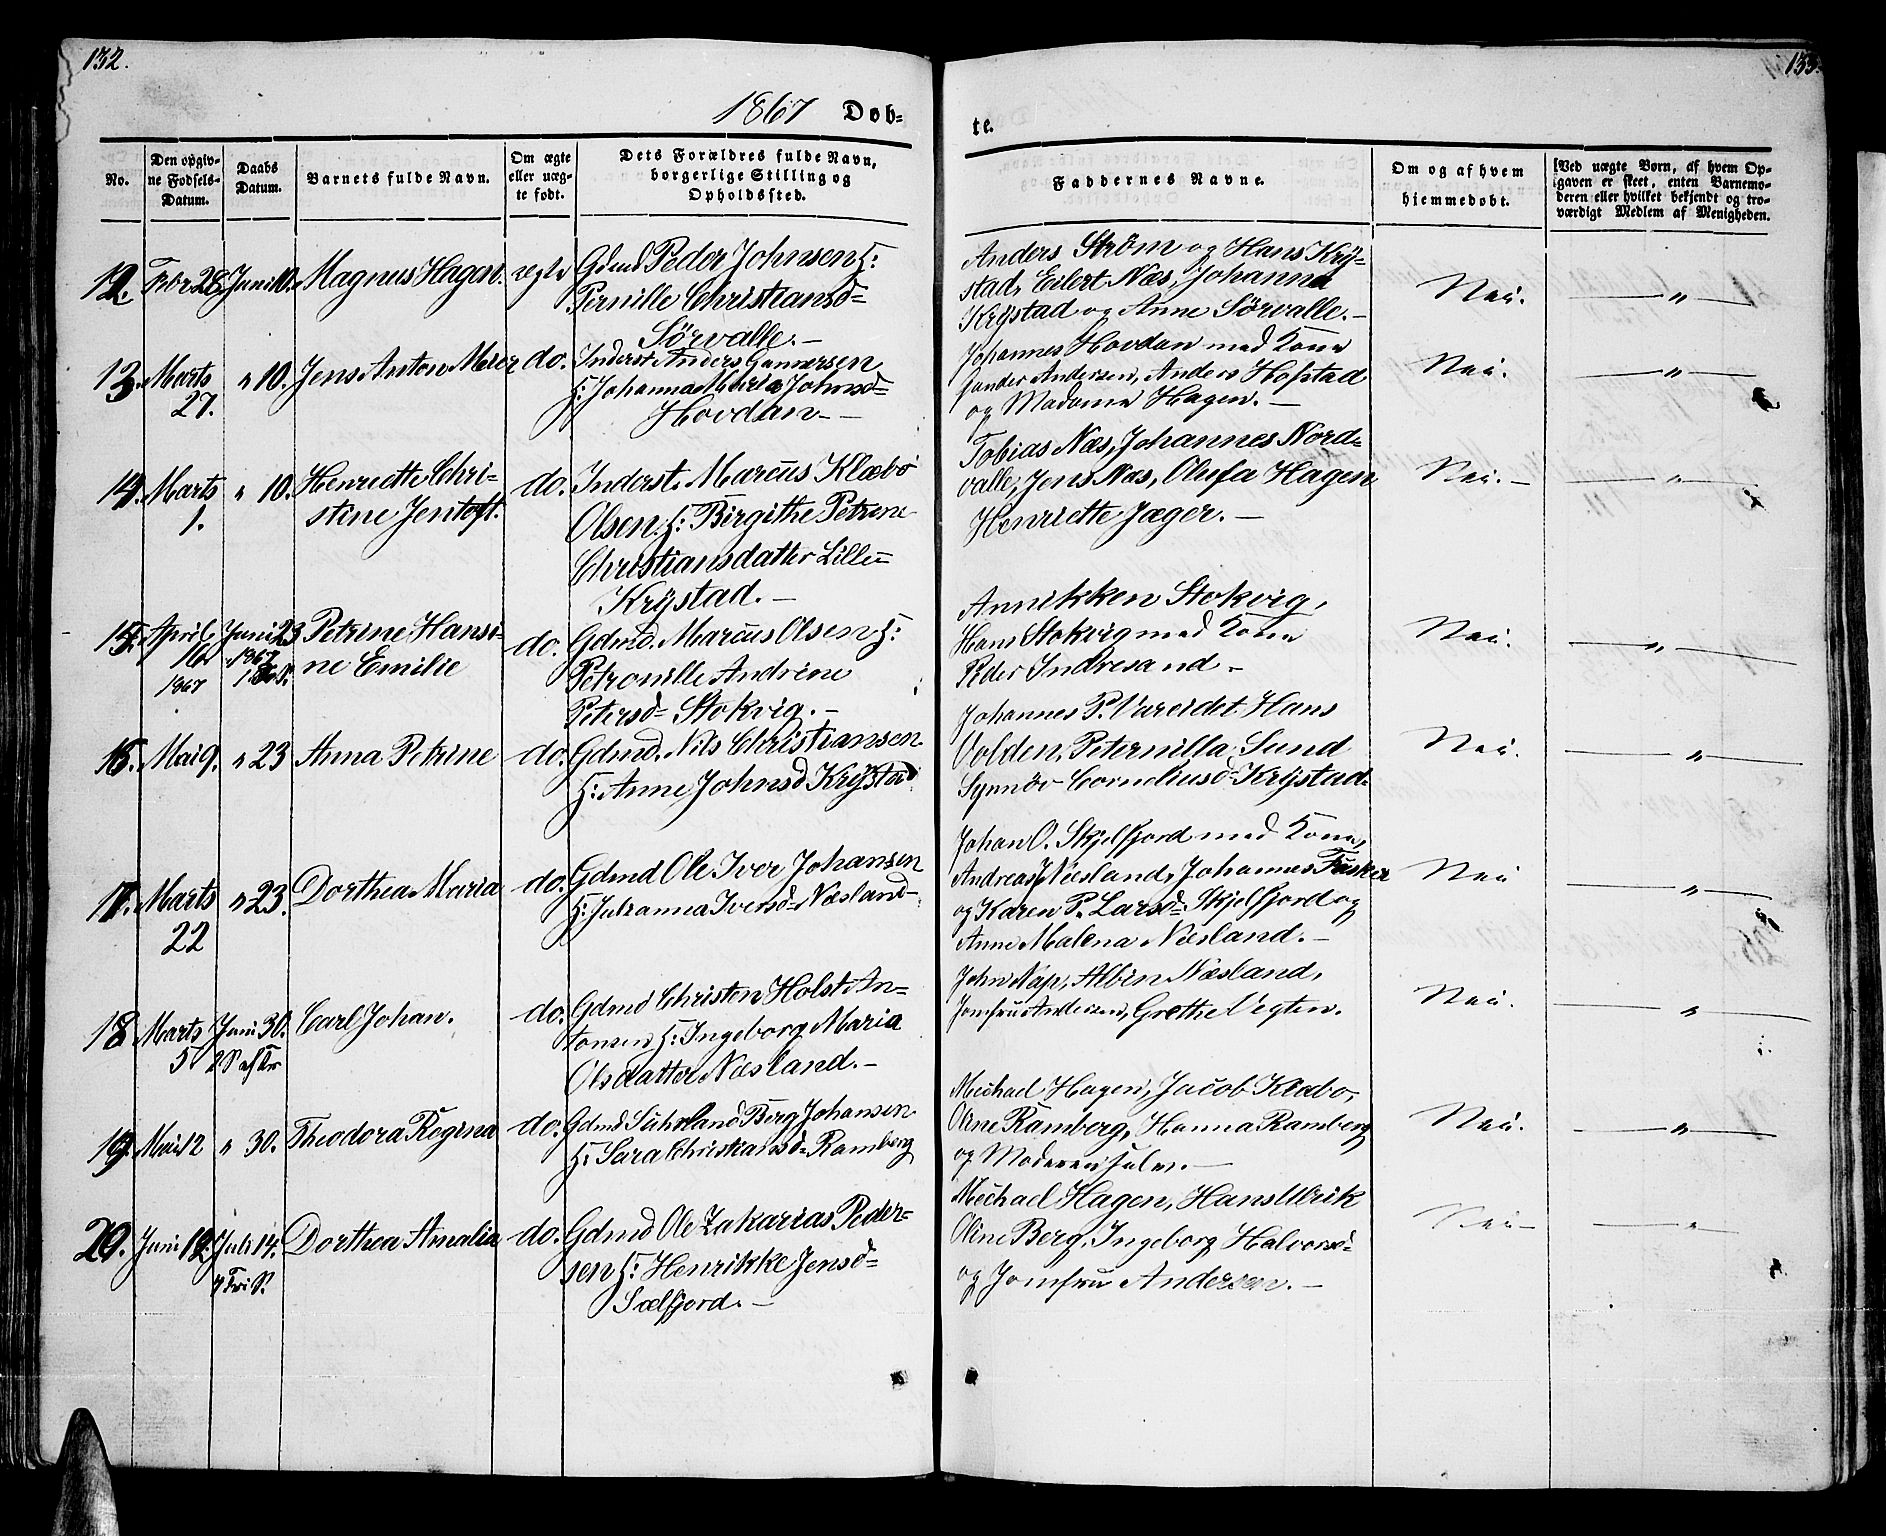 132.
133.
1867 Døb-
te.
No.
Den opgiv-
ne Fødsels-
Datum.
Daabs
Datum.
Barnets fulde Navn.
Om ægte
eller uæg-
te født.
Dets Forældres fulde Navn,
borgerlige Stilling og
Opholdssted.
Faddernes Navne.
Om og af hvem
hjemmedøbt.
Ved uægte Børn, af hvem Op-
gaven er skeet, enten Barnemo-
deren eller hvilket bekjendt og tro-
værdigt Medlem af Menigheden.
12. Febr 28 Juni 10. Magnus Hagen. ægte Gdmd Peder Johnsen H:
Pernille Christiansd=
Sörvalle. -
Anders Ström og Hans Krÿ-
stad, Eilert Næs, Johanna
Krÿstad og Anne Sörvalle. -
Nei. — " —
13. Marts
27.
" 10. Jens Anton Meier do. Inderst. Anders Gunnersen
H: Johanna Maria Johnsd=
Hovdan -
Johannes Hovdan med Kone
Sander Andersen, Anders Hofstad
og Madame Hagen. -
Nei. — " —
14. Marts
1.
" 10. Henriette Chri-
stine Jentoft. do. Inderst. Marcus Klæbo
Olsen. H: Birgithe Petrine
Christiansdatter Lille=
Krÿstad. -
Tobias Næs, Johannes Nord=
valle, Jens Næs, Olufa Hagen
Henriette Jæger. -
Nei. - — " —
15. April
16
1867
Juni 23
1867
Petrine Hansi-
ne Emilie do. Gdmd. Marcus Olsen H:
Petronille Andrine
Petersd= Stokvig. -
Annikken Stokvig,
Hans Stokvig med Kone
Peder Indresand -
Nei. — " —
16. Mai 9. " 23 Anna Petrine do. Gdmd. Nils Christiansen
H: Anne Johnsd Krÿstad
Johannes P. Vareidet Hans
Volden, Peternilla Sund
Synnöv Corneliusd Krÿstad
Nei. — " —
17. Marts
22
" 23. Dorthea Maria do. Gdmd Ole Iver Johansen
H: Julianna Iversd= Næsland -
Johan O. Skjelfjord med Kone,
Andreas J Næsland, Johannes Fusker
og Karen P. Larsd= Skjelfjord og
Anne Malena Næsland. -
Nei — " —
18 Marts
5
Juni 30.
2 S ef Tr
Carl Johan. do. Gdmd Christen Holst An=
tonsen H: Ingeborg Maria
Olsdatter Næsland. -
John Nap, Albin Næsland,
Jomfru Andersen, Grethe Vegten.
Nei. — " —
19. Mai 12 " 30. Theodora Regina do. Gdmd Suhrland Berg Johansen
H: Sara Christiansd= Ramberg
Michael Hagen, Jacob Klæbo,
Oline Ramberg, Hanna Ramberg
og Moderen selv. -
Nei. — " —
20. Juni 12. Juli 14.
4 Tri S.
Dorthea Amalia do. Gdmd Ole Zakarias Peder=
sen H: Henrikke Jensd=
Sælfjord. -
Michael Hagen, Hans Ulrik
Oline Berg, Ingeborg Halvorsd=
og Jomfru Andersen. -
Nei - — " —